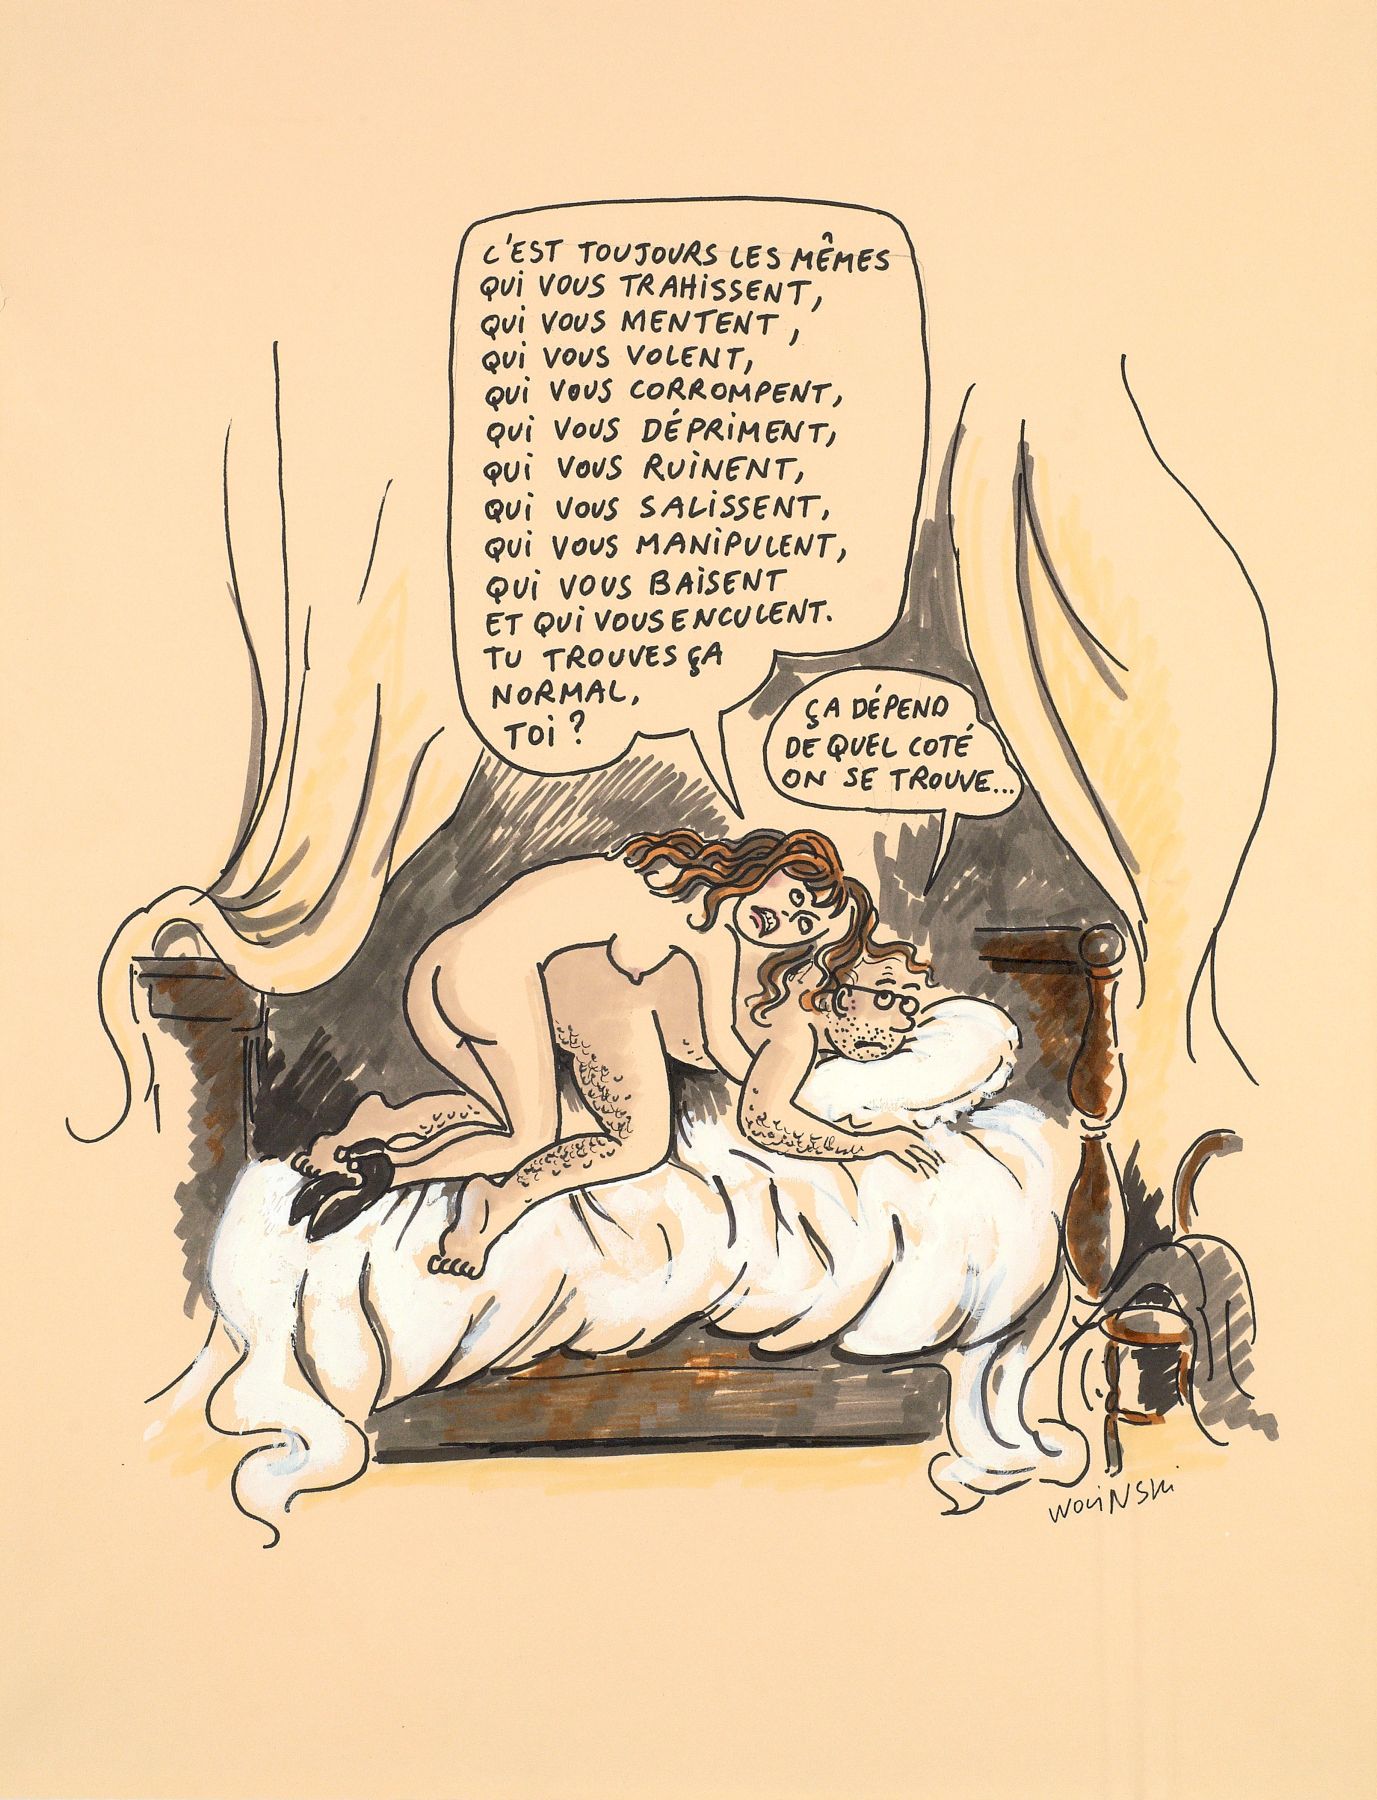 C'EST TOUJOURS LES MÊMES
QUI VOUS TRAHISSENT,
QUI VOUS MENTENT,
QUI VOUS VOLENT,
QUI VOUS CORROMPENT,
QUI VOUS DÉPRIMENT,
QUI VOUS RUINENT,
QUI VOUS SALISSENT,
QUI VOUS MANIPULENT,
QUI VOUS BAISENT
ET QUI VOUS ENCULENT.
TU TROUVES ÇA
NORMAL,
TOI ?
ÇA DÉPEND
DE QUEL COTÉ
ON SE TROUVE...
WOLINSKI